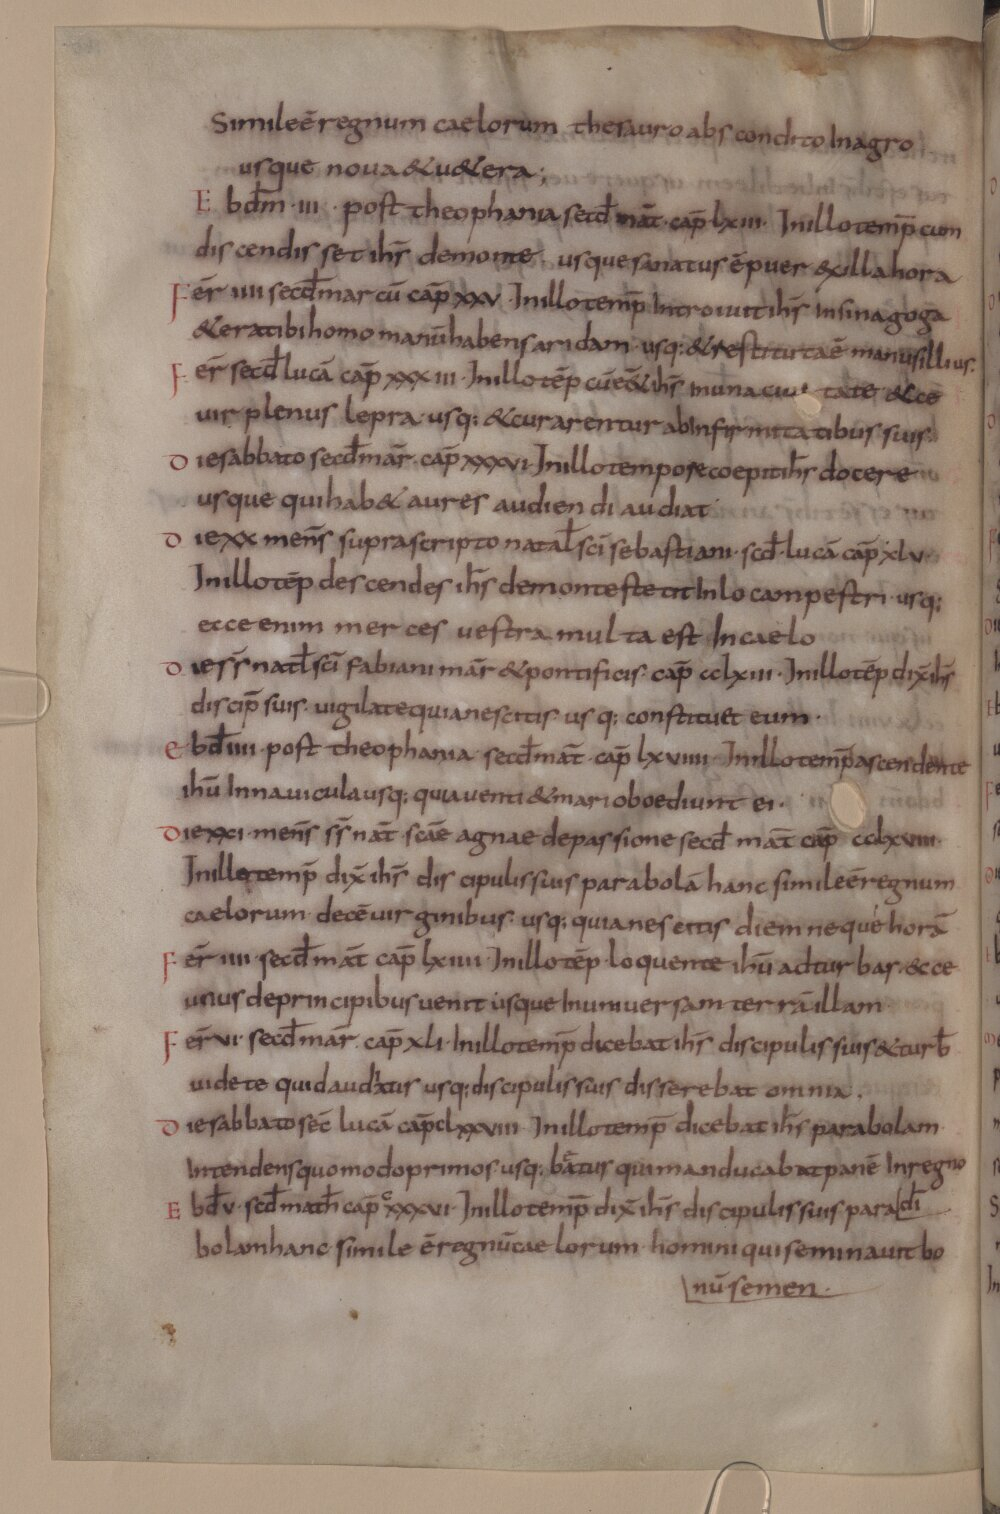 Simile ē regnum caelorum thesauro abscondito In agro
usque noua & u&era;
Ebđm · iii · post theophania secđ māt · cap̄ lxiii · In illo temp̄ cum
discendisset ih̄s de monte usque sanatus ē puer ex illa hora
Fēr iiii secđ mar cū cap̄ xxv · In illo temp̄ Introiuit ih̄s In sinagoga
& erat ibi homo manū habens aridam usq; & restituta ē manus illius.
Fēr secđ lucā cap̄ xxxiii · In illo tēp cū eēt ih̄s In una ciuitate & ecce
uir plenus lepra · usq; & curarentur ab Infirmitatibus suis
Die sabbato secđ mār · cap̄ xxxvi · In illo tempore coepit ih̄s docere
usque qui hab& aures audiendi audiat
Die xx men̄s suprascripto natal̄ sc̄i sebastiani · scđ · lucā cap̄ xlv ·
In illo tēp descendes ih̄s de monte stetit In lo campestri · usq;
ecce enim merces uestra multa est In caelo
Die s̄s natl̄ sc̄i fabiani mār & pontificis · cap̄ cclxiii · In illo tēp dix̄ ih̄s
discip̄ suis · uigilate quia nescitis usq; constituet eum ·
Ebđ iiii · post theophania secđ māt · cap̄ lxviiii · In illo temp̄ ascendente
ihū In nauicula usq; quia uenti & mari oboediunt ei ·
Die xxi · men̄s s̄s nāt · scāe agnae de passione secđ māt cap̄ cclxviii ·
In illo temp̄ dix̄ ih̄s discipulis suis parabolā hanc simile ē regnum
caelorum decē uirginibus · usq; quia nescitis diem neque horā
Fēr iiii · secđ māt cap̄ lxiiii · In illo tēp loquente ihū ad turbas · & ecce
unus de principibus uenit usque In uniuersam terrā illam
Fēr vi · secđ mār cap̄ xli · In illo temp̄ dicebat ih̄s discipulis suis & turb̄
uidete quid auditis usq; discipulis suis disserebat omnia.
Die sabbato sec̄ lucā cap̄ clxxviii · In illo temp̄ dicebat ih̄s parabolam
Intendens quomodo primos usq; bātus qui manducabat panē In regno
di
Ebđ v · scđ math̄ cap̄ cxxxvi · In illo temp̄ dix̄ ih̄s discipulis suis para
bolam hanc simile ē regnū caelorum homini qui seminauit bo
nū semen ·